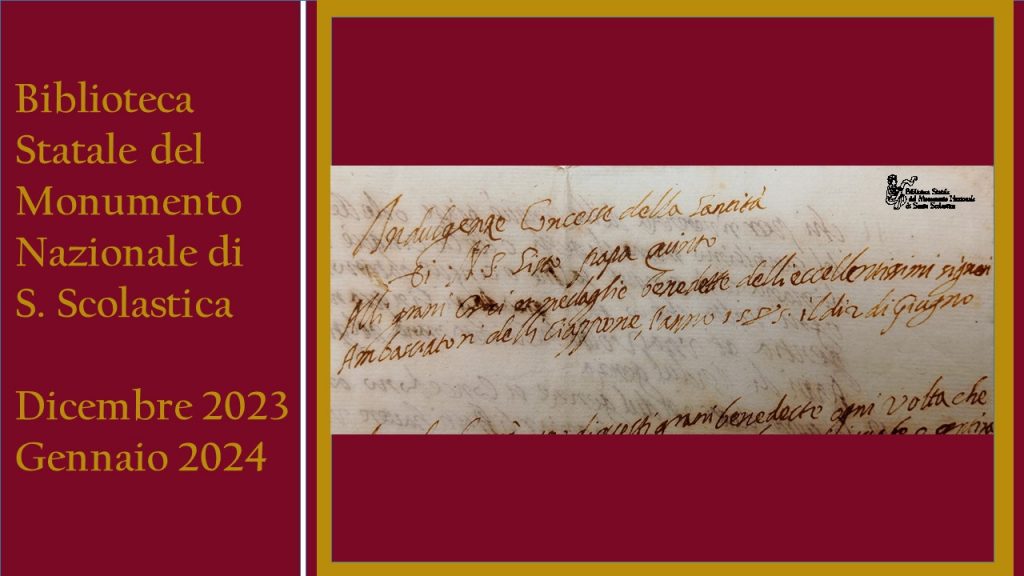 Biblioteca
Statale del
Monumento
Nazionale di
S. Scolastica
Dicembre 2023
Gennaio 2024
Biblioteca Statale
del Monumento Nazionale
di Santa Scolastica
Indulgenze Concesse della Santità
Di N. S. Sisto papa quinto
Alli grani Croci et medaglie benedette delli eccellentissimi signori
Ambasciatori delli Giappone, l'anno 1585. il di 2 di Giugno
di questi grani benedecte ogni volta che